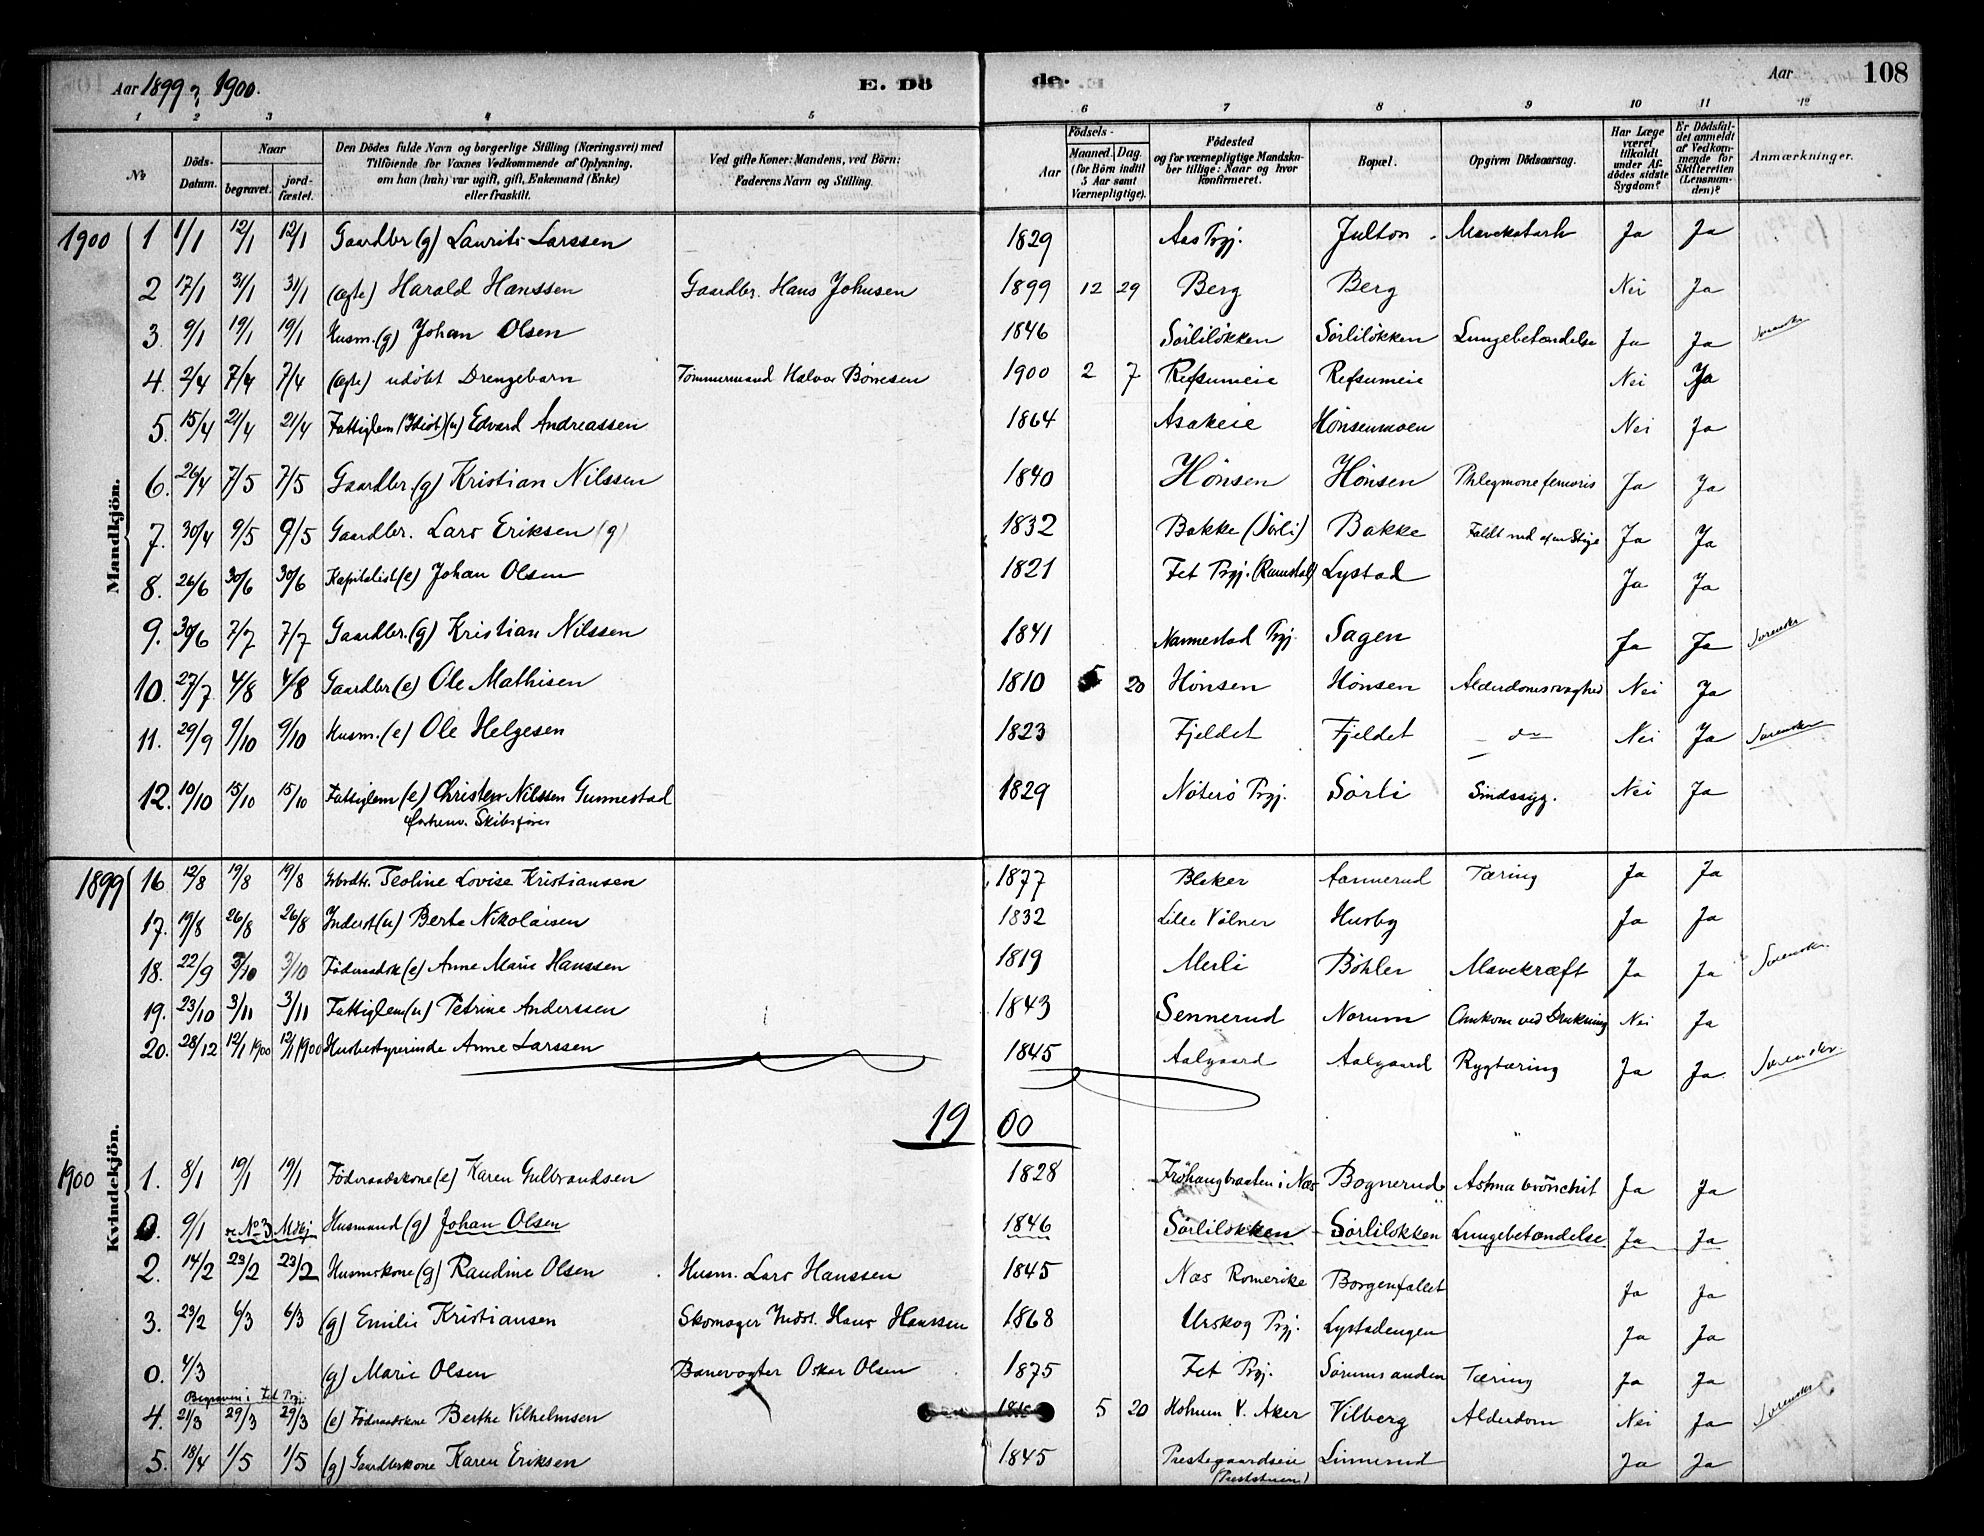 Aar 1899 & 1900. E. Dö de. Aar 108
1 2 3 4 5 6 7 8 9 10 11 12
No Döds-Datum. Naar begravet. jord-fæstet. Den Dödes fulde Navn og borgerlige Stilling (Næringsvei) med Tilföiende for Voxnes Vedkommende af Oplysning, om han (hun) var ugift, gift, Enkemand (Enke) eller fraskilt. Ved gifte Koner: Mandens, ved Börn: Faderens Navn og Stilling. Födsels- Aar Maaned. Dag. (for Börn indtil 5 Aar samt Værnepligtige). Födested og for værnepligtige Mandska-ber tillige: Naar og hvor konfirmeret. Bopæl. Opgiven Dödsaarsag. Har Læge været tilkaldt under Af-dödes sidste Sygdom? Er Dödsfal-det anmeldt af Vedkom-mende for Skifteretten (Lensman-den)? Anmærkninger.
Mandkjön.
1900 1 1/1 12/1 12/1 Gaardbr (g) Laurits Larssen 1829 Aas Prgj. Julton Mavekatarh Ja Ja
2 17/1 31/1 31/1 (ægte) Harald Hanssen Gaardbr. Hans Johnsen 1899 12 29 Berg Berg Nei Ja
3. 9/1 19/1 19/1 Husm. (g) Johan Olsen 1846 Sörlilökken Sörlilökken Lungebetændelse Ja Ja
4. 2/4 7/4 7/4 (ægte) udöbt Drengebarn Tömmermand Halvor Börresen 1900 2 7 Refsumeie Refsumeie Nei Ja
5. 15/4 21/4 21/4 Fattiglem (Idiot) (u) Edvard Andreassen 1864 Asakeie Hönsenmoen Nei Ja
6. 26/4 7/5 7/5 Gaardbr. (g) Kristian Nilssen 1840 Hönsen Hönsen Phlegmone femoris Ja Ja
7. 30/4 9/5 9/5 Gaardbr. Lars Eriksen (g) 1832 Bakke (Sörli) Bakke Faldt ned af en Stige Ja Ja
8. 26/6 30/6 30/6 Kapitalist (e) Johan Olsen 1821 Fet Prgj. (Ramstad) Lystad Ja Ja
9. 30/6 7/7 7/7 Gaardbr. (g) Kristian Nilssen 1841 Nannestad Prgj. Sagen Ja Ja Sorenskr
10. 27/7 4/8 4/8 Gaardbr (e) Ole Mathisen 1810 5 20 Hönsen Hönsen Alderdomssvaghed Nei Ja
11. 29/9 9/10 9/10 Husm. (e) Ole Helgesen 1823 Fjeldet Fjeldet — do — Nei Ja Sorenskr
12. 10/10 15/10 15/10 Fattiglem (e) Christen Nilssen Gunnestad 1829 Nöterö Prgj. Sörli Sindssyg. Nei Ja
forhenv. Skibsförer
Kvindekjön.
1899 16 12/8 19/8 19/8 Teoline Lovise Kristiansen 1877 Blaker Aannerud Tæring Ja Ja
17. 19/8 26/8 26/8 Inderst (u) Berte Nikolaisen 1832 Lille Völner Husby Ja Ja
18. 22/9 3/10 3/10 Föderaadsk (e) Anne Marie Hanssen 1819 Merli Böhler Mavekræft Ja Ja Sorenskr.
19. 23/10 3/11 3/11 Fattiglem (u) Petrine Anderssen 1843 Sennerud Norum Omkom ved Drukning Nei Ja
20. 28/12 12/1 1900 12/1 1900 Husbestyrerinde Anne Larssen 1845 Aalgaard Aalgaard Rygtæring Ja Ja Sorenskr.
19 00
1900 1. 8/1 19/1 19/1 Föderaadskone (e) Karen Gulbrandsen 1828 Fröhaugbraaten i Næs Bognerud Astma bronchit Ja Ja
0. 9/1 se No 3 Mdkj. Husmand (g) Johan Olsen 1846 Sörlilökken Sörlilökken Lungebetændelse Ja Ja
2. 14/2 23/2 23/2 Husmskone (g) Randine Olsen Husm. Lars Hanssen 1845 Næs Romerike Borgenfallet Ja Ja
3. 23/2 6/3 6/3 (g) Emilie Kristiansen Skomager Indst. Hans Hanssen 1868 Urskog Prgj. Lystadengen Ja Ja
0. 4/3 (g) Marie Olsen Banevogter Oskar Olsen 1875 Fet Prgj. Sörumsanden Tæring Ja Ja
Begraven i Fet Prgj.
4. 21/3 29/3 29/3 (e) Föderaadskone Berthe Vilhelmsen 5 20 Holmen V. Aker Vilberg Alderdom Nei Ja Sorenskr
5. 18/4 1/5 1/5 (g) Gaardbrkone Karen Eriksen 1845 Prestegaardseie Linnerud Ja Ja
(Prestestuen)